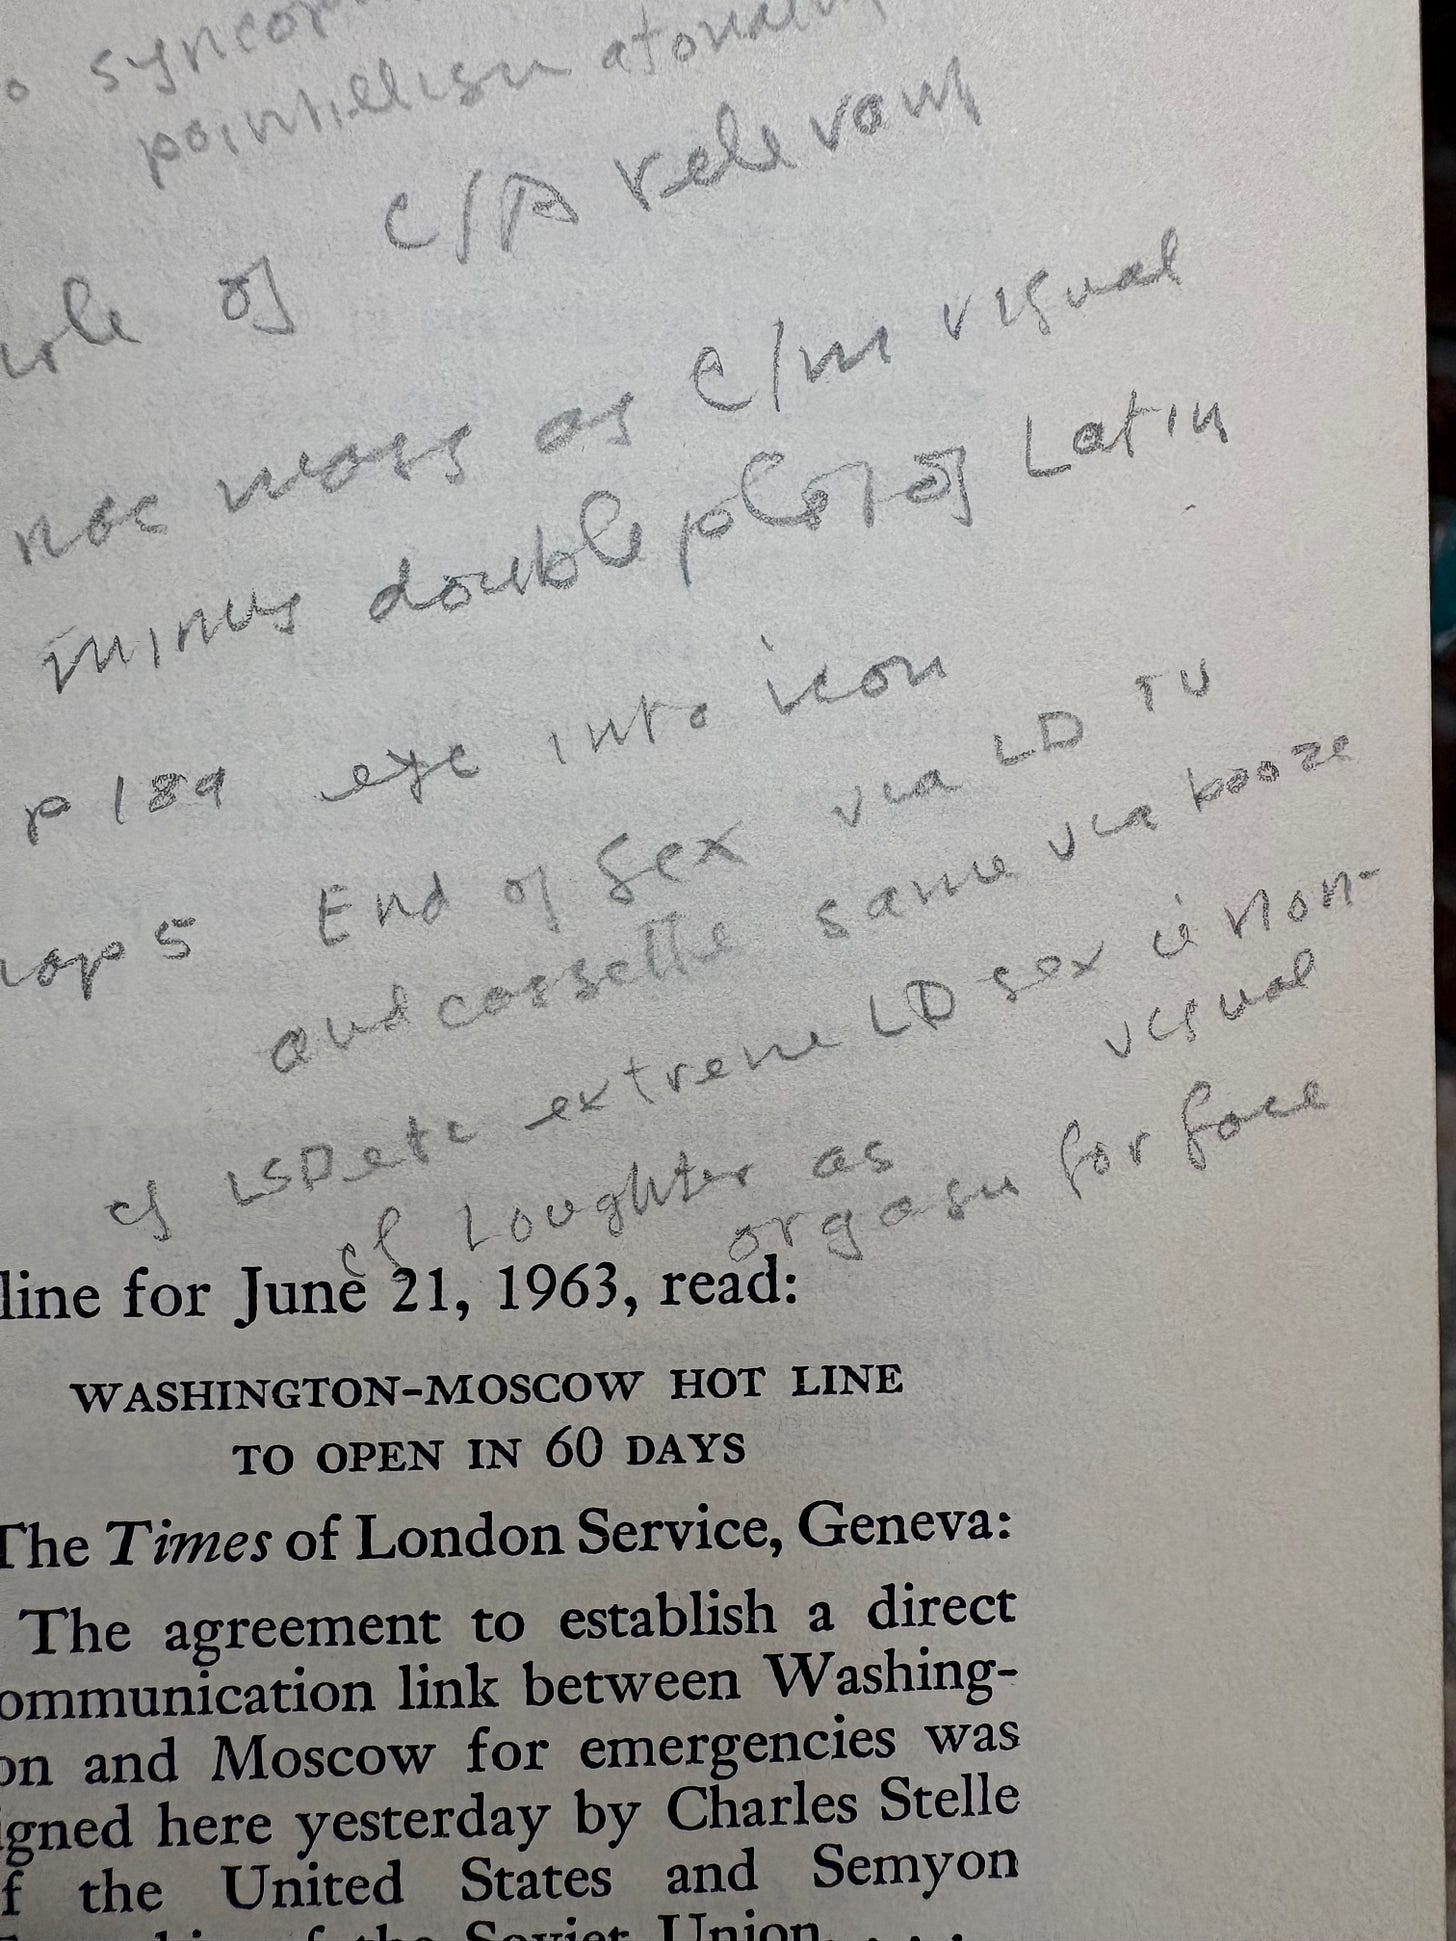 pointillism atonality
of C/A relevant
mass as C/M visual
minus double plot of Latin
p 189 eye into icon
5 End of Sex via LD TV
and cassette same via booze
cf LSD etc extreme LD sex is non-
visual
cf Laughter as
orgasm for face
line for June 21, 1963, read:
WASHINGTON–MOSCOW HOT LINE
TO OPEN IN 60 DAYS
The Times of London Service, Geneva:
The agreement to establish a direct
ommunication link between Washing-
on and Moscow for emergencies was
igned here yesterday by Charles Stelle
f the United States and Semyon
of the Soviet Union. . . .